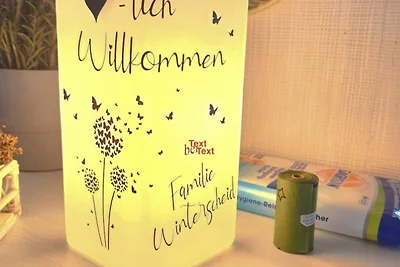 -lich
Willkommen
Text
Text
Familie
Winterscheid
ygiene-Rein
cher